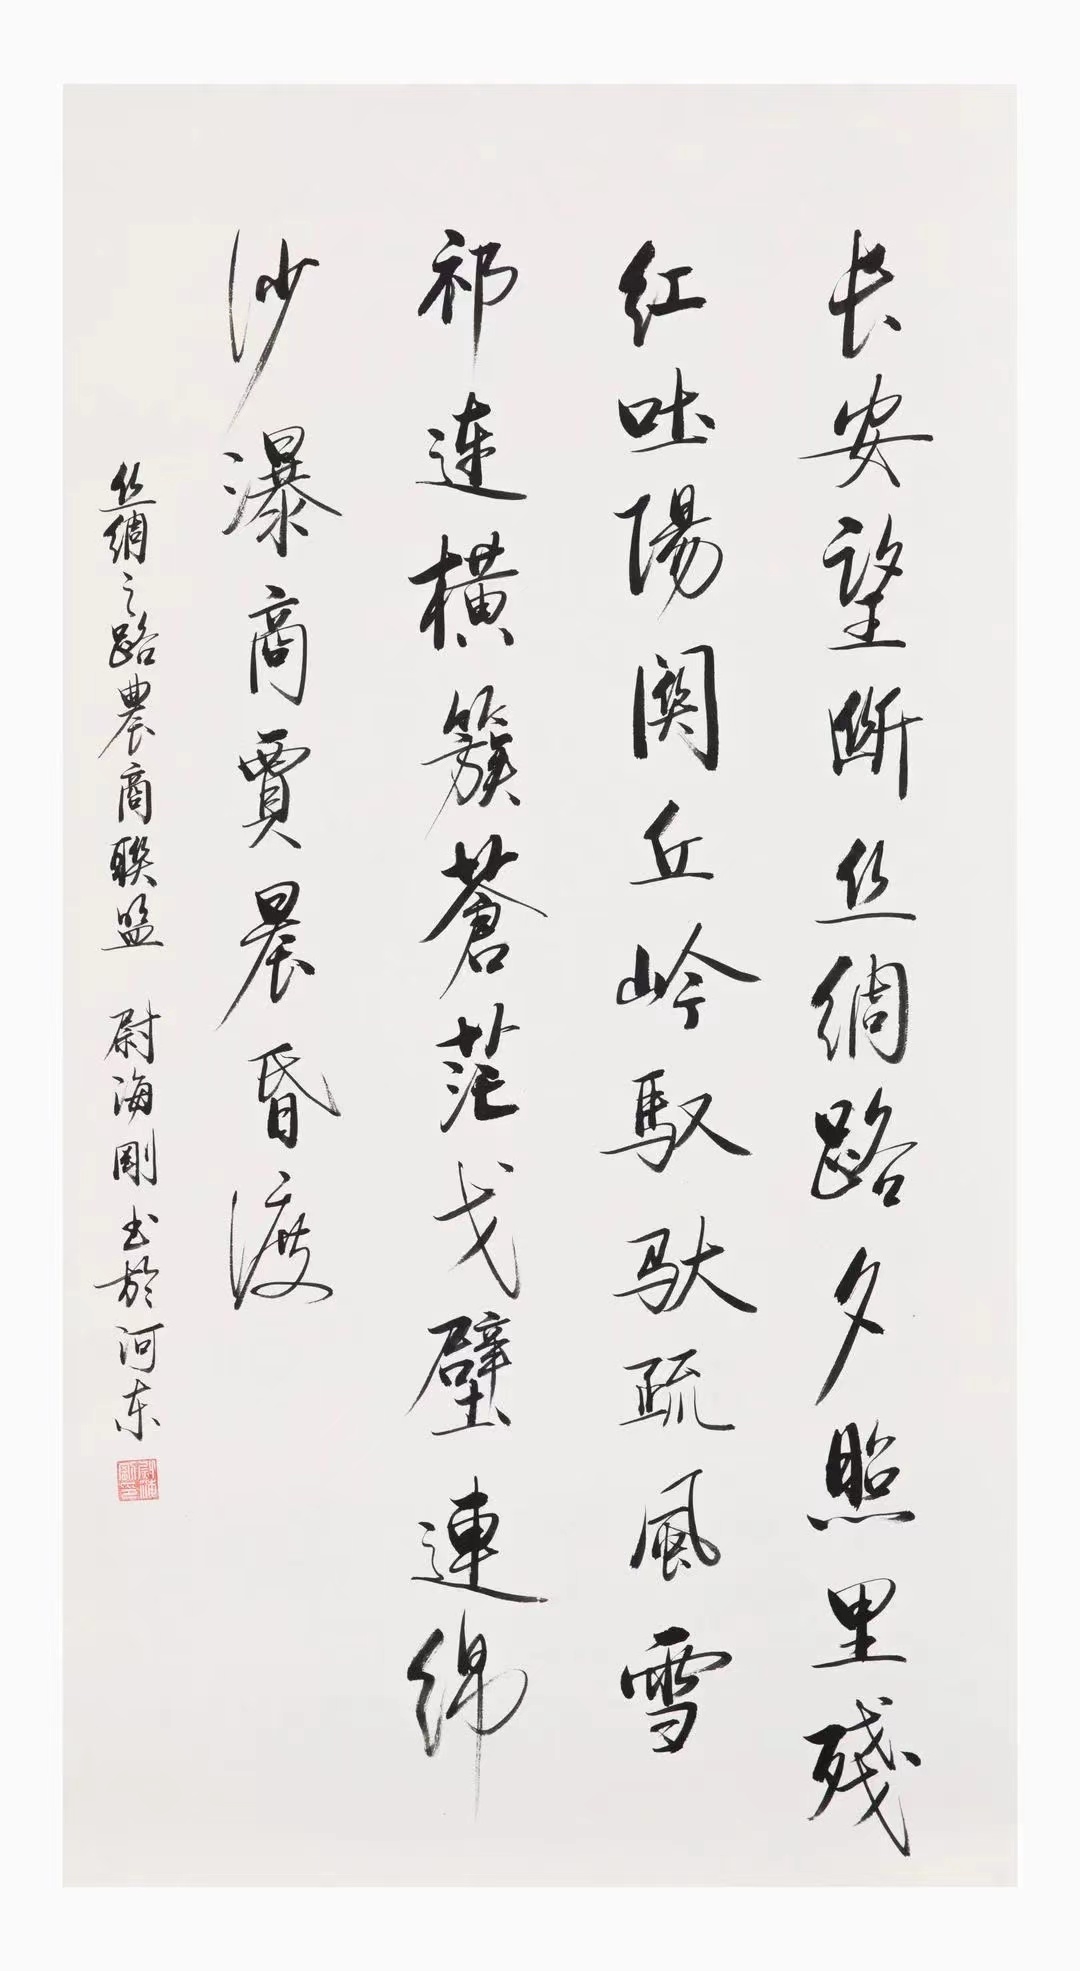 长安望断丝绸路夕照里残
红吐陽関丘岭驭驮疏風雪
祁连横簇蒼茫戈壁連绵
沙瀑商賈晨昏渡
丝绸之路農商联盟 尉海刚书於河东